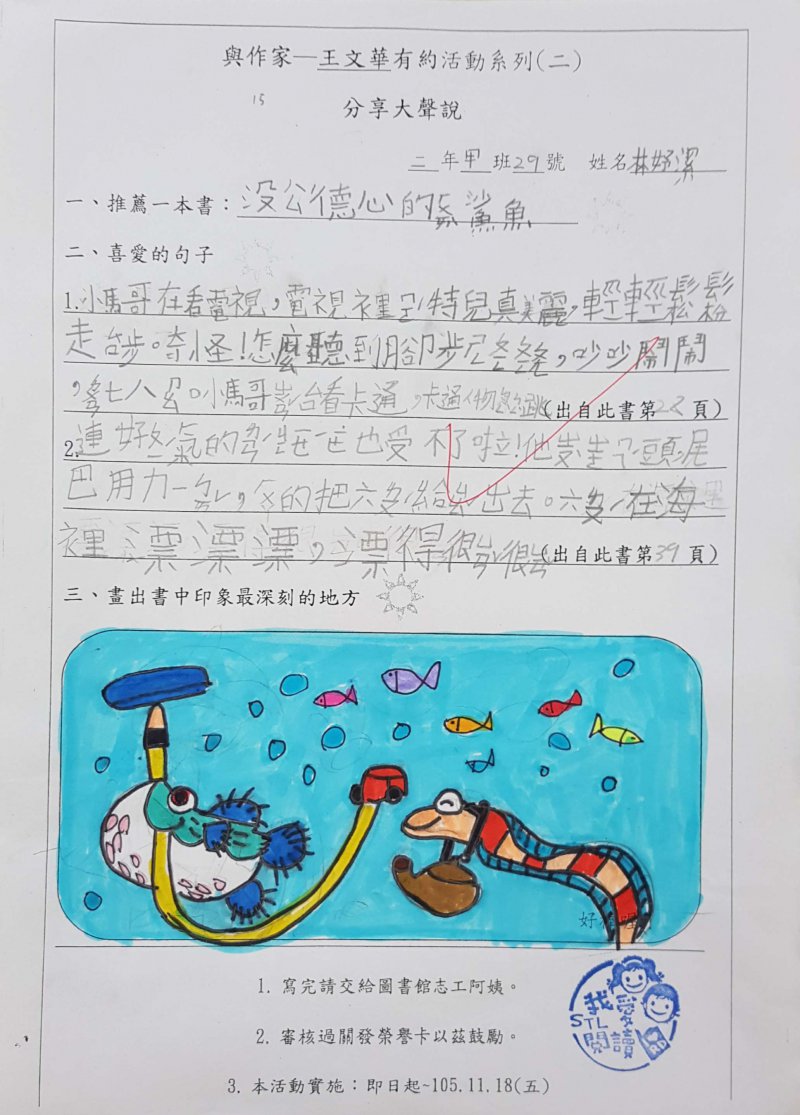 與作家—王文華有約活動系列(二)
15
分享大聲說
二年甲班29號 姓名林妤潔
一、推薦一本書：沒公德心的ㄉㄞ鯊魚
二、喜愛的句子
1.小馬哥在看電視，電視裡 特兒真美麗，輕輕鬆鬆
走台步。奇怪！怎麼聽到腳步 ，吵吵鬧鬧
，七八 。小馬哥 台看卡通，卡通人物 跳(出自此書第28頁)
2.連好 氣的 也受不了啦！他 頭，尾
巴用力一 ， 的把六 給 出去。六 在海
裡漂漂漂，漂得很 很 (出自此書第39頁)
三、畫出書中印象最深刻的地方
好
1. 寫完請交給圖書館志工阿姨。
2. 審核過關發榮譽卡以茲鼓勵。
3. 本活動實施：即日起~105.11.18(五)
我愛
STL
閱讀